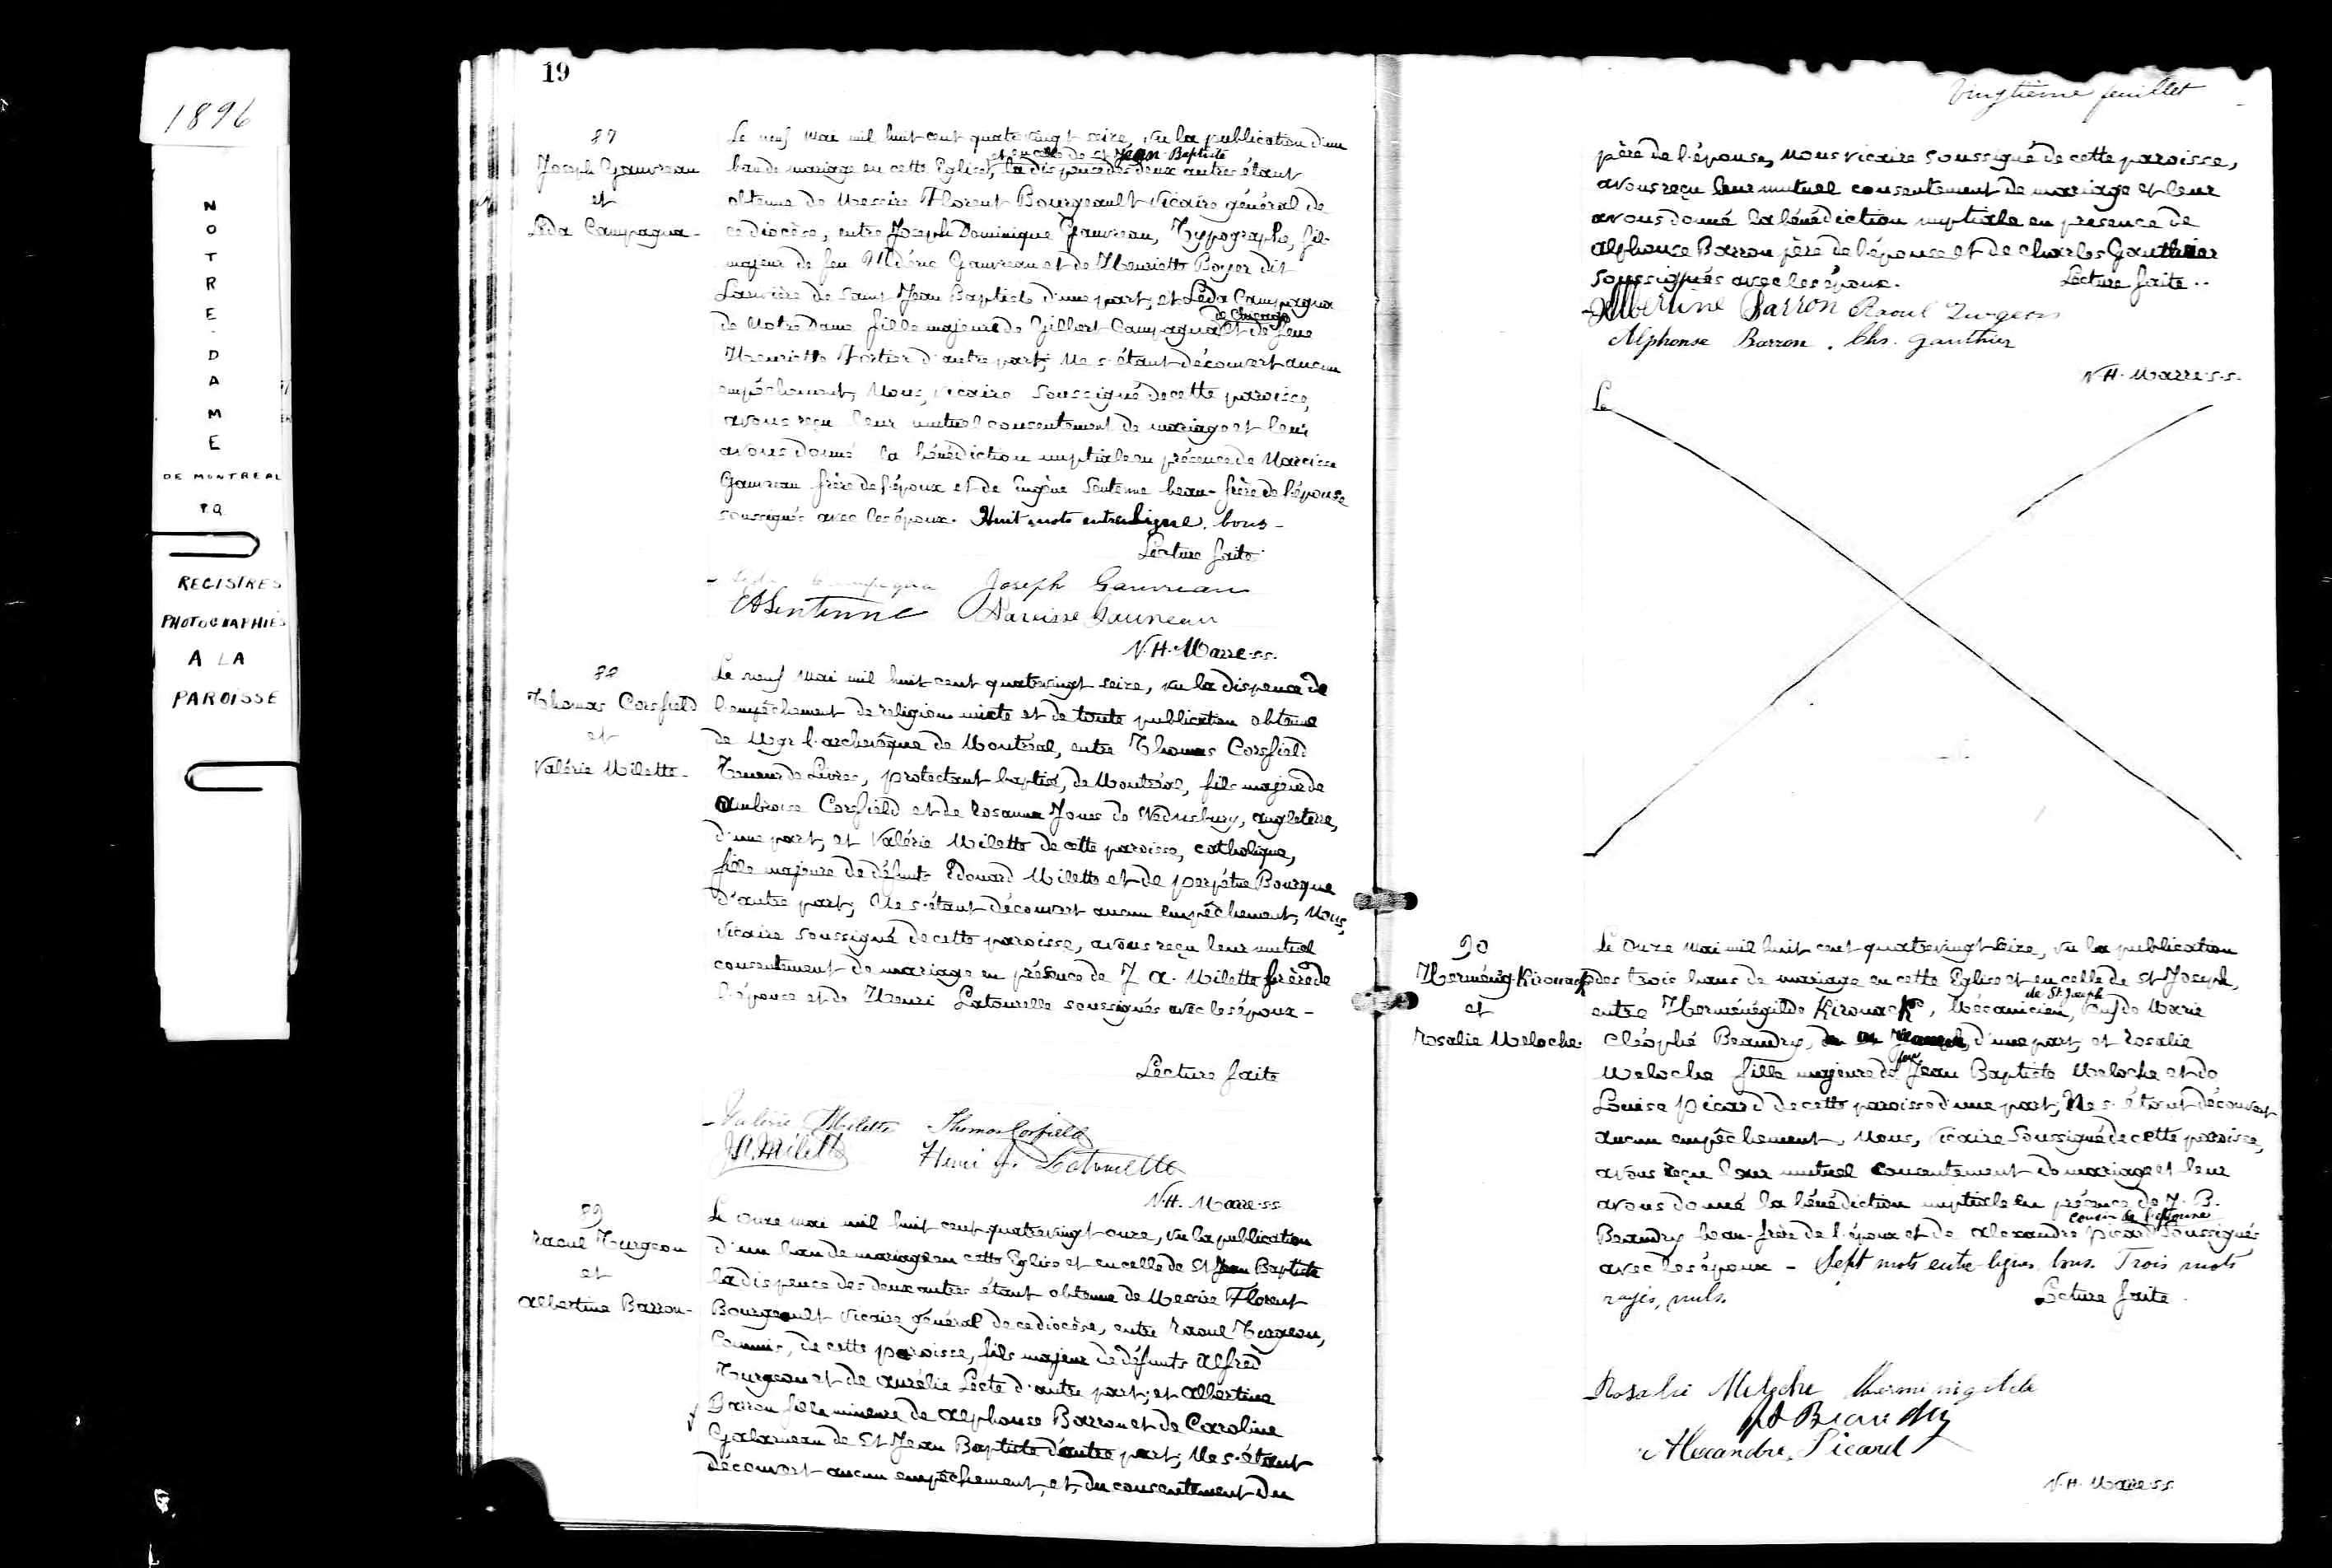 1896
NOTRE-DAME
DE MONTREAL
P.Q.
REGISTRES
PHOTOGRAPHIÉS
A LA
PAROISSE
19
87
Joseph Gauvreau
et
Léda Campagna -
Le neuf mai mil huit cent quatrevingt seize, vu la publication d'un
et en celle de St Jean Baptiste
ban de mariage en cette Eglise, la dispense des deux autres étant
obtenue de Messire Florent Bourgeault Vicaire général de
ce diocèse, entre Joseph Dominique Gauvreau, Typographe, fils
majeur de feu Uldéric Gauvreau et de Henriette Boyer dit
de Saint Jean Baptiste d'une part, et Léda Campagna
de Chicago
de Notre Dame fille majeure de Gilbert Campagna et de feue
Henriette Fortier d'autre part; Ne s'étant découvert aucun
empêchement, Nous, vicaire soussigné de cette paroisse,
avons reçu leur mutuel consentement de mariage et leur
avons donné la bénédiction nuptiale en présence de Narcisse
Gauvreau frère de l'époux et de Eugène Sentenne beau-frère de l'épouse
soussignés avec les époux. Huit mots entreligne. bons -
Lecture faite
Campagna Joseph Gauvreau
Sentenne Narcisse Gauvreau
N.H. Marre s.s.
88
Thomas Corsfield
et
Valérie Milette -
Le neuf Mai mil huit cent quatrevingt seize, vu la dispense de
l'empêchement de religion mixte et de toute publication obtenue
de Mgr l'archevêque de Montréal, entre Thomas Corsfield
Teneur de Livres, protestant baptisé, de Montréal, fils majeur de
Ambroise Corsfield et de Rosanna Jones de Wednesbury, angleterre,
d'une part, et Valérie Milette de cette paroisse, catholique,
fille majeure de défunts Edouard Milette et de perpétue Bourque
d'autre part; Ne s'étant découvert aucun empêchement, Nous,
Vicaire soussigné de cette paroisse, avons reçu leur mutuel
consentement de mariage en présence de J. A. Milette frère de
l'épouse et de Henri Latourelle soussignés avec les époux -
Lecture faite
Valérie Milette Thomas Corfield
J.A. Milette Henri J. Latourelle
N.H. Marre s.s.
89
Raoul Turgeon
et
Albertine Barron -
Le onze mai mil huit cent quatrevingt onze, vu la publication
d'un ban de mariage en cette Eglise et en celle de St Jean Baptiste
la dispense des deux autres étant obtenue de Messire Florent
Bourgeault Vicaire général de ce diocèse, entre Raoul Turgeon,
Commis, de cette paroisse, fils majeur de défunts Alfred
Turgeon et de Aurélie d'autre part; et Albertine
Barron fille mineure de Alphonse Barron et de Caroline
Galarneau de St Jean Baptiste d'autre part; Ne s'étant
découvert aucun empêchement, et du consentement du
Vingtième feuillet
père de l'épouse, nous vicaire soussigné de cette paroisse,
avons reçu leur mutuel consentement de mariage et leur
avons donné la bénédiction nuptiale en présence de
Alphonse Barron père de l'épouse et de Charles Gauthier
soussignés avec les époux. Lecture faite..
Albertine Barron Raoul Turgeon
Alphonse Barron. Chs. Gauthier
N.H. Marre s.s.
Le
90
Herménig. Kirouack
et
Rosalie Meloche.
Le onze mai mil huit cent quatrevingt seize, vu la publication
des trois bans de mariage en cette Eglise et en celle de St Joseph,
de St Joseph
entre Herménégilde Kirouack, Mécanicien, veuf de Marie
Cléophé Beaudry, d'une part, et Rosalie
feu
Meloche fille majeure de Jean Baptiste Meloche et de
Louise Picard de cette paroisse d'une part; Ne s'étant découvert
aucun empêchement, Nous, Vicaire soussigné de cette paroisse,
avons reçu leur mutuel consentement de mariage et leur
avons donné la bénédiction nuptiale en présence de J. B.
cousin de l'épouse
Beaudry beau-frère de l'époux et de Alexandre Picard soussignés
avec les époux - Sept mots entre lignes bons. Trois mots
rayés, nuls. Lecture faite.
Rosalie Meloche
Beaudry
Alexandre Picard
N.H. Marre s.s.